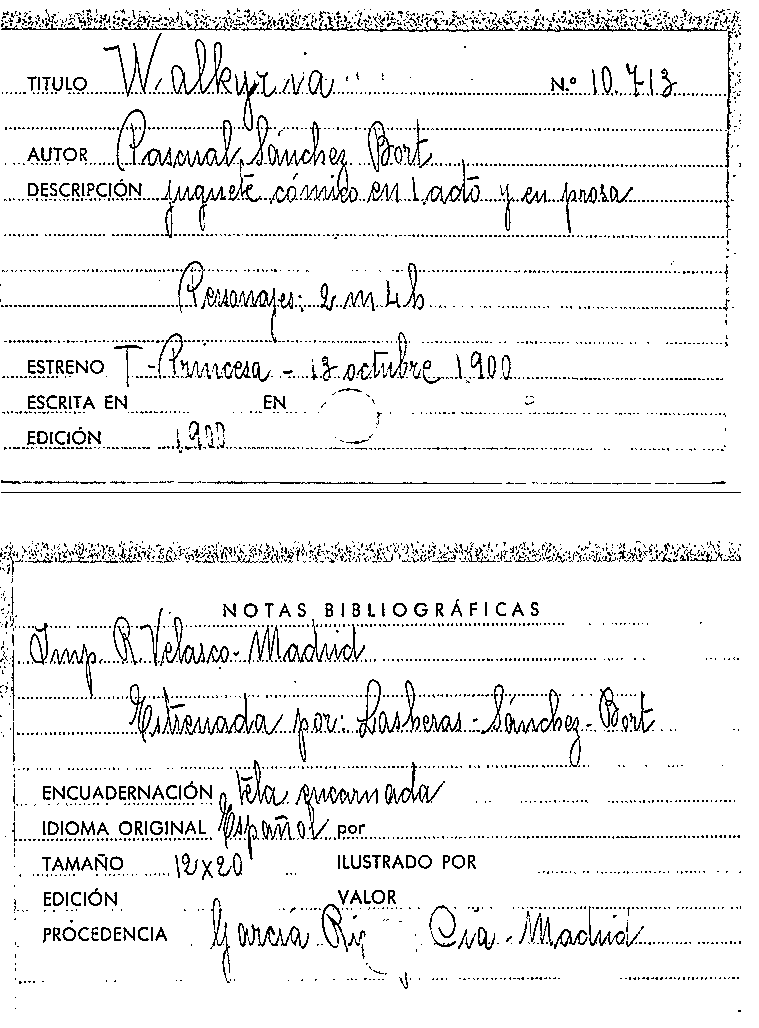 TITULO Walkyria N.º 10.713
AUTOR Pascual Sánchez Bort
DESCRIPCIÓN juguete cómico en 1 acto y en prosa
Personajes: 2 m 4 h
ESTRENO T-Princesa - 13 octubre 1900
ESCRITA EN EN
EDICIÓN 1900
NOTAS BIBLIOGRÁFICAS
Imp. R Velasco - Madrid
Estrenada por: Lasheras - Sánchez - Bort
ENCUADERNACIÓN tela encarnada
IDIOMA ORIGINAL Español por
TAMAÑO 12x20 ILUSTRADO POR
EDICIÓN VALOR
PROCEDENCIA García Cia - Madrid